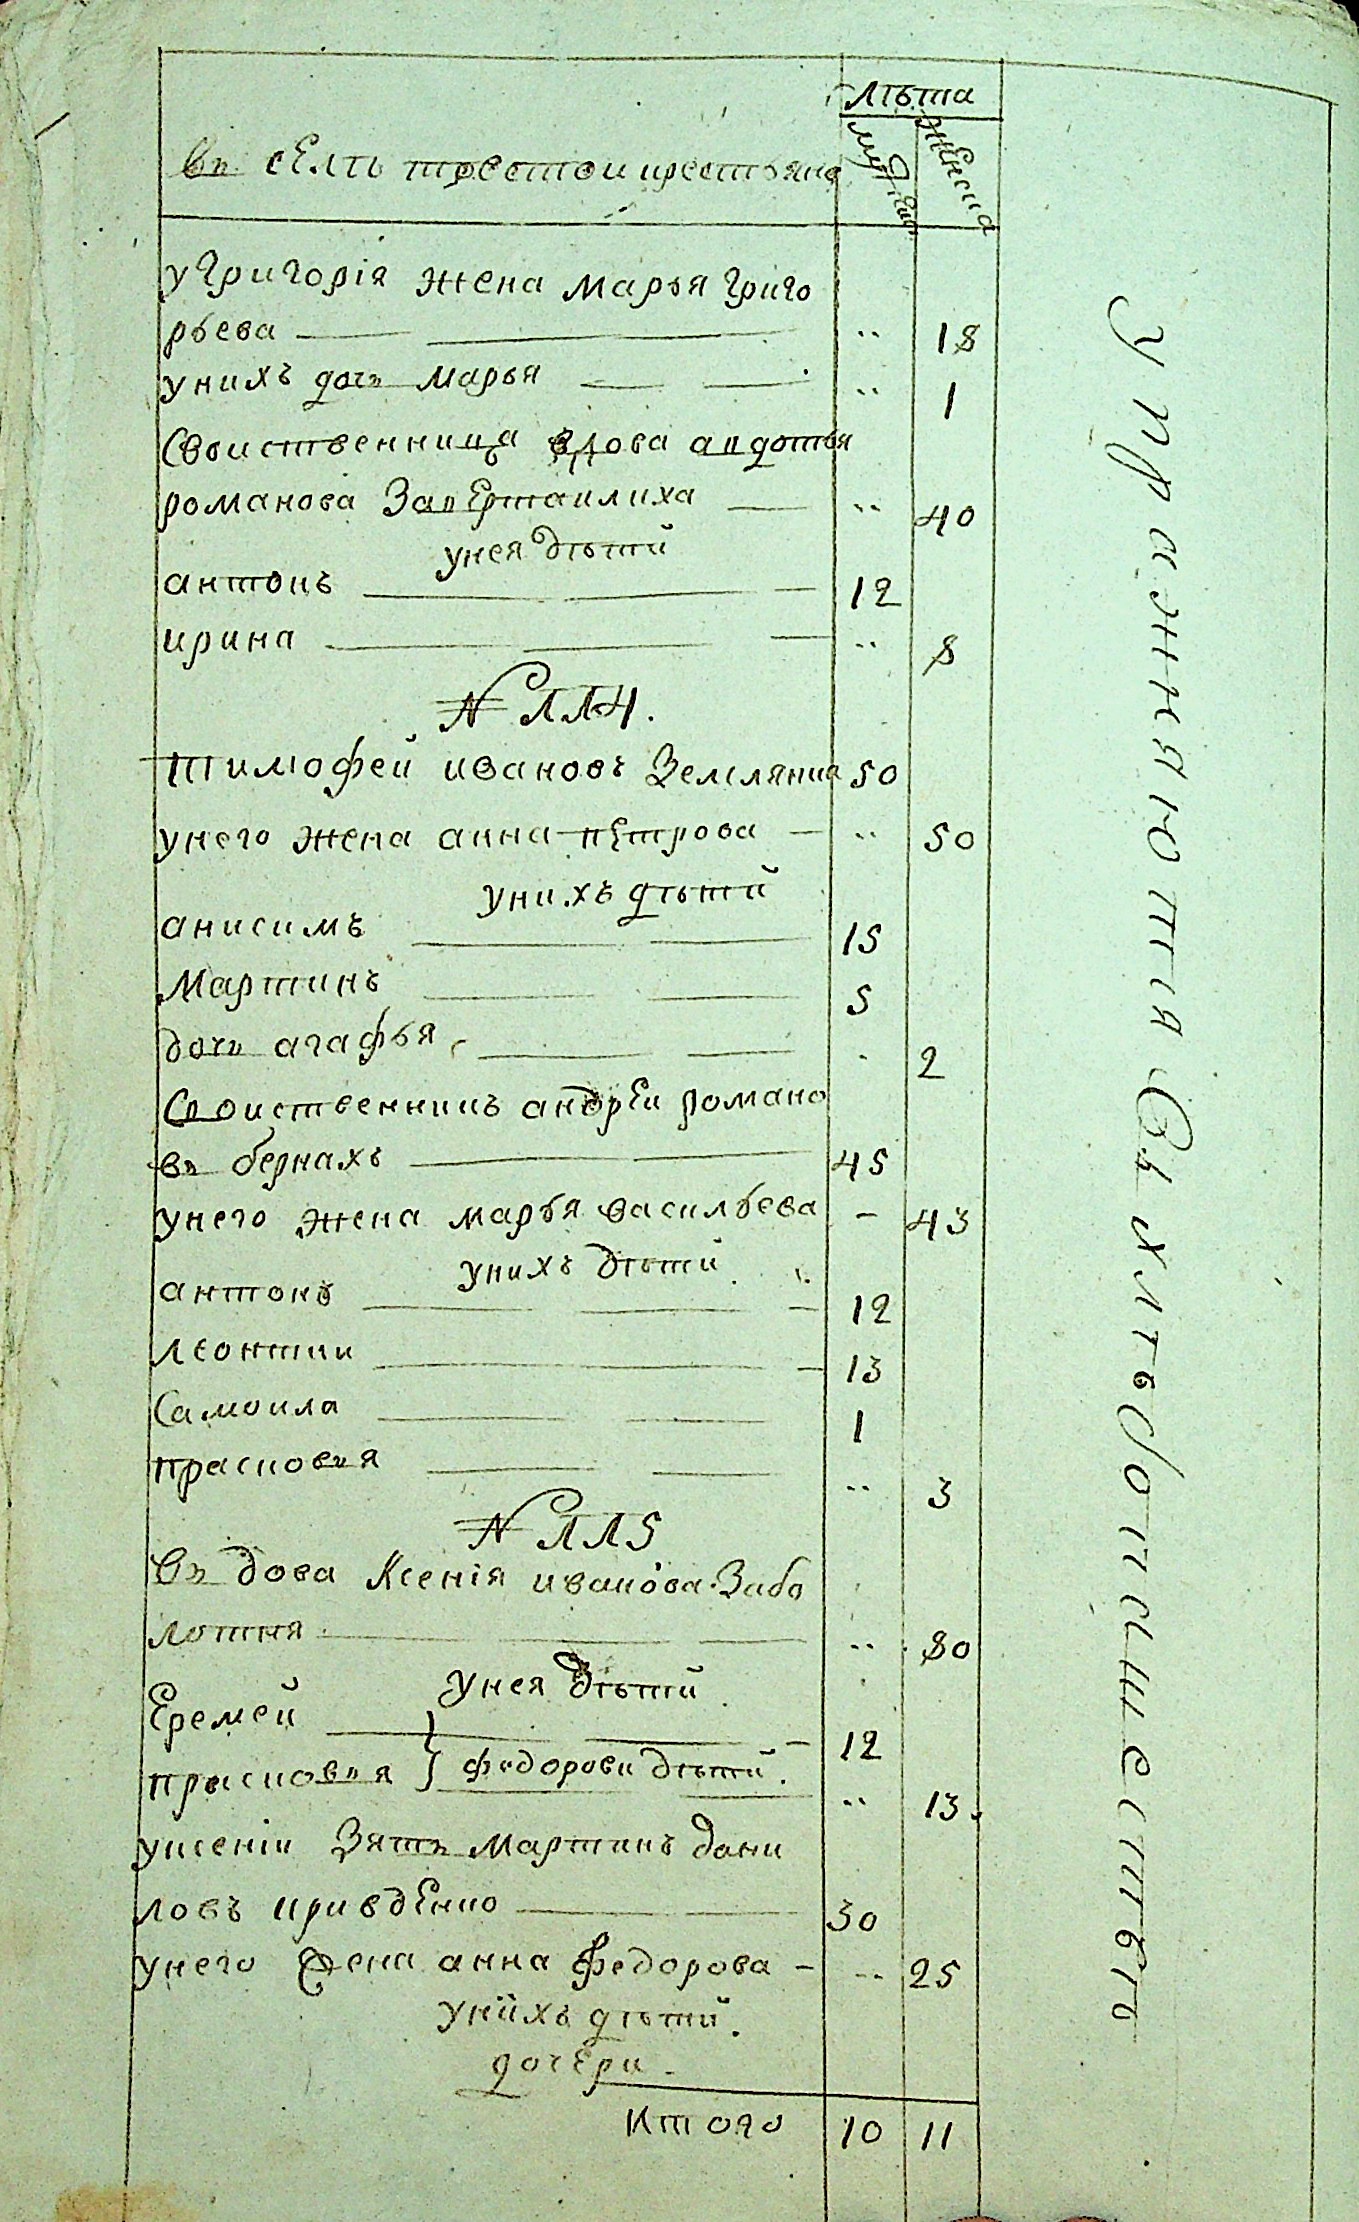 лѣта
въ селѣ трестои крестьянъ
мужеск
женска
у Григорія жена марья григо
рьева 18
унихъ дочь марья 1
Своиственница вдова авдотья
романова Завертаилиха 40
унея дѣтй
антонъ 12
ирина 8
N 114.
тимофей ивановъ Землянка 50
унего жена анна петрова 50
унихъ дѣтй
анисимъ 15
Мартинъ 5
дочь агафья 2
Своиственникъ андреи романо
въ бернахъ 45
унего жена марья васильева 43
унихъ дѣтй
антонъ 12
леонтии 13
Самоила 1
прасковья 3
N 115
Въдова Ксенія иванова Забо
лотня 80
унея дѣтй
Еремей 12
прасковья } федорови дѣтй. 13.
уксеніи Зять Мартинъ дани
ловъ кривденко 30
унего жена анна федорова 25
унихъ дѣтй.
дочери
Итого 10 11
упражняются Въ хлѣбопашествѣ